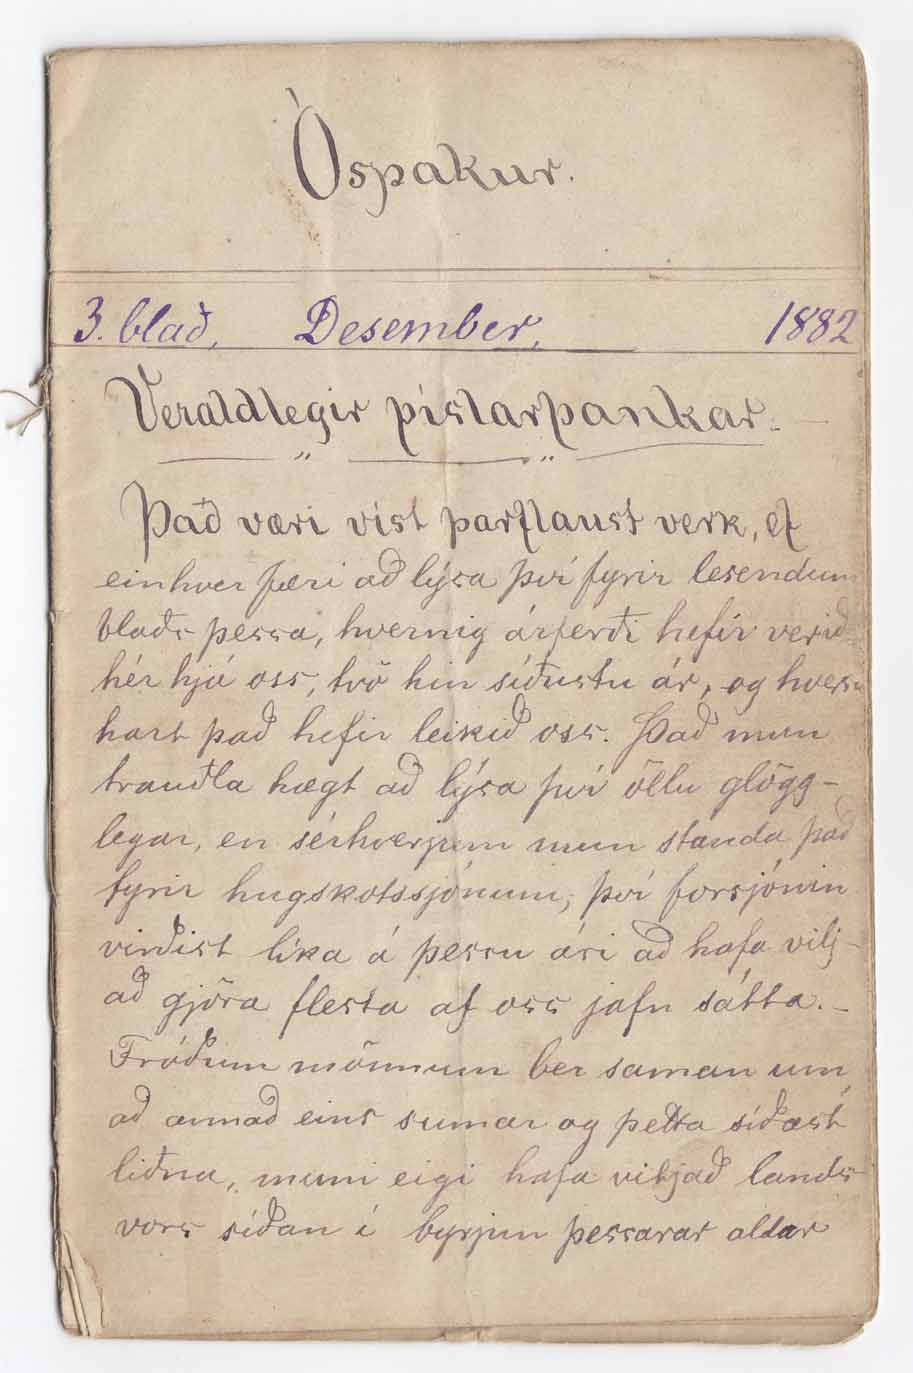 Óspakur.
3. blað, Desember, 1882
Veraldlegir píslarþankar.
Það væri víst þarflaust verk, ef
einhver færi að lýsa því fyrir lesendum
blaðs þessa, hvernig árferði hefir verið
hér hjá oss, tvö hin síðustu ár, og hversu
hart það hefir leikið oss. Það mun
trauðla hægt að lýsa því öllu glögg-
legar, en sérhverjum mun standa það
fyrir hugskotssjónum; því forsjónin
virðist líka á þessu ári að hafa vilj-
að gjöra flesta af oss jafn sátta. -
Fróðum mönnum ber saman um,
að annað eins sumar og þetta síðast
liðna, muni eigi hafa vitjað lands
vors síðan í byrjun þessarar aldar